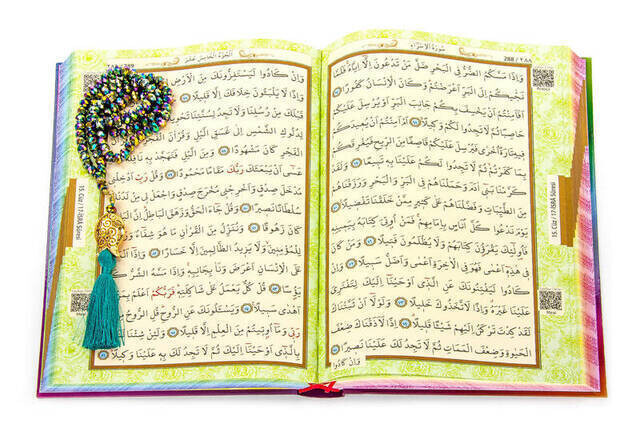 سُورَةُ الْاِسْرَاءِ
288 / ٢٨٨
وَاِذَا مَسَّكُمُ الضُّرُّ فِي الْبَحْرِ ضَلَّ مَنْ تَدْعُونَ اِلَّٓا اِيَّاهُ فَلَمَّا
نَجّٰيكُمْ اِلَى الْبَرِّ اَعْرَضْتُمْ وَكَانَ الْاِنْسَانُ كَفُورًا ﴿٦٧﴾
اَفَاَمِنْتُمْ اَنْ يَخْسِفَ بِكُمْ جَانِبَ الْبَرِّ اَوْ يُرْسِلَ عَلَيْكُمْ
حَاصِبًا ثُمَّ لَا تَجِدُوا لَكُمْ وَكِيلًا ﴿٦٨﴾ اَمْ اَمِنْتُمْ اَنْ يُعِيدَكُمْ
فِيهِ تَارَةً اُخْرٰى فَيُرْسِلَ عَلَيْكُمْ قَاصِفًا مِنَ الرِّيحِ فَيُغْرِقَكُمْ
بِمَا كَفَرْتُمْ ثُمَّ لَا تَجِدُوا لَكُمْ عَلَيْنَا بِهِ تَبِيعًا ﴿٦٩﴾ وَلَقَدْ
كَرَّمْنَا بَنِي اٰدَمَ وَحَمَلْنَاهُمْ فِي الْبَرِّ وَالْبَحْرِ وَرَزَقْنَاهُمْ
مِنَ الطَّيِّبَاتِ وَفَضَّلْنَاهُمْ عَلٰى كَثِيرٍ مِمَّنْ خَلَقْنَا تَفْضِيلًا ﴿٧٠﴾
يَوْمَ نَدْعُوا كُلَّ اُنَاسٍ بِاِمَامِهِمْ فَمَنْ اُوتِيَ كِتَابَهُ بِيَمِينِهِ
فَاُولٰٓئِكَ يَقْرَؤُنَ كِتَابَهُمْ وَلَا يُظْلَمُونَ فَتِيلًا ﴿٧١﴾ وَمَنْ كَانَ
فِي هٰذِهِ اَعْمٰى فَهُوَ فِي الْاٰخِرَةِ اَعْمٰى وَاَضَلُّ سَبِيلًا ﴿٧٢﴾ وَاِنْ
كَادُوا لَيَفْتِنُونَكَ عَنِ الَّذِي اَوْحَيْنَا اِلَيْكَ لِتَفْتَرِيَ
عَلَيْنَا غَيْرَهُ وَاِذًا لَاتَّخَذُوكَ خَلِيلًا ﴿٧٣﴾ وَلَوْلَا اَنْ ثَبَّتْنَاكَ
لَقَدْ كِدْتَ تَرْكَنُ اِلَيْهِمْ شَيْـًٔا قَلِيلًا ﴿٧٤﴾ اِذًا لَاَذَقْنَاكَ ضِعْفَ
الْحَيٰوةِ وَضِعْفَ الْمَمَاتِ ثُمَّ لَا تَجِدُ لَكَ عَلَيْنَا نَصِيرًا ﴿٧٥﴾
وَاِنْ كَادُوا
15. Cüz / 17-İSRÂ Sûresi
Meal
اَلْجُزْءُ الْخَامِسُ عَشَرَ
289
وَاِنْ كَادُوا لَيَسْتَفِزُّونَكَ مِنَ الْاَرْضِ
وَاِذًا لَا يَلْبَثُونَ خِلَافَكَ اِلَّا قَلِيلًا ﴿٧٦﴾
قَبْلَكَ مِنْ رُسُلِنَا وَلَا تَجِدُ لِسُنَّتِنَا تَحْوِيلًا
لِدُلُوكِ الشَّمْسِ اِلٰى غَسَقِ الَّيْلِ وَقُرْاٰنَ
الْفَجْرِ كَانَ مَشْهُودًا ﴿٧٨﴾ وَمِنَ الَّيْلِ فَتَهَجَّدْ بِهِ نَافِلَةً
عَسٰٓى اَنْ يَبْعَثَكَ رَبُّكَ مَقَامًا مَحْمُودًا ﴿٧٩﴾ وَقُلْ رَبِّ اَدْخِلْنِي
مُدْخَلَ صِدْقٍ وَاَخْرِجْنِي مُخْرَجَ صِدْقٍ وَاجْعَلْ لِي مِنْ لَدُنْكَ
سُلْطَانًا نَصِيرًا ﴿٨٠﴾ وَقُلْ جَٓاءَ الْحَقُّ وَزَهَقَ الْبَاطِلُ اِنَّ الْبَاطِلَ
كَانَ زَهُوقًا ﴿٨١﴾ وَنُنَزِّلُ مِنَ الْقُرْاٰنِ مَا هُوَ شِفَٓاءٌ
لِلْمُؤْمِنِينَ وَلَا يَزِيدُ الظَّالِمِينَ اِلَّا خَسَارًا ﴿٨٢﴾
عَلَى الْاِنْسَانِ اَعْرَضَ وَنَاٰ بِجَانِبِهِ وَاِذَا مَسَّهُ الشَّرُّ
يَؤُسًا ﴿٨٣﴾ قُلْ كُلٌّ يَعْمَلُ عَلٰى شَاكِلَتِهِ فَرَبُّكُمْ اَعْلَمُ بِمَنْ
اَهْدٰى سَبِيلًا ﴿٨٤﴾ وَيَسْـَٔلُونَكَ عَنِ الرُّوحِ قُلِ الرُّوحُ مِنْ
رَبِّي وَمَٓا اُوتِيتُمْ مِنَ الْعِلْمِ اِلَّا قَلِيلًا ﴿٨٥﴾ وَلَئِنْ شِئْنَا
بِالَّذِٓي اَوْحَيْنَٓا اِلَيْكَ ثُمَّ لَا تَجِدُ لَكَ بِهِ عَلَيْنَا وَكِيلًا ﴿٨٦﴾
15. Cüz / 17-İSRÂ Sûresi